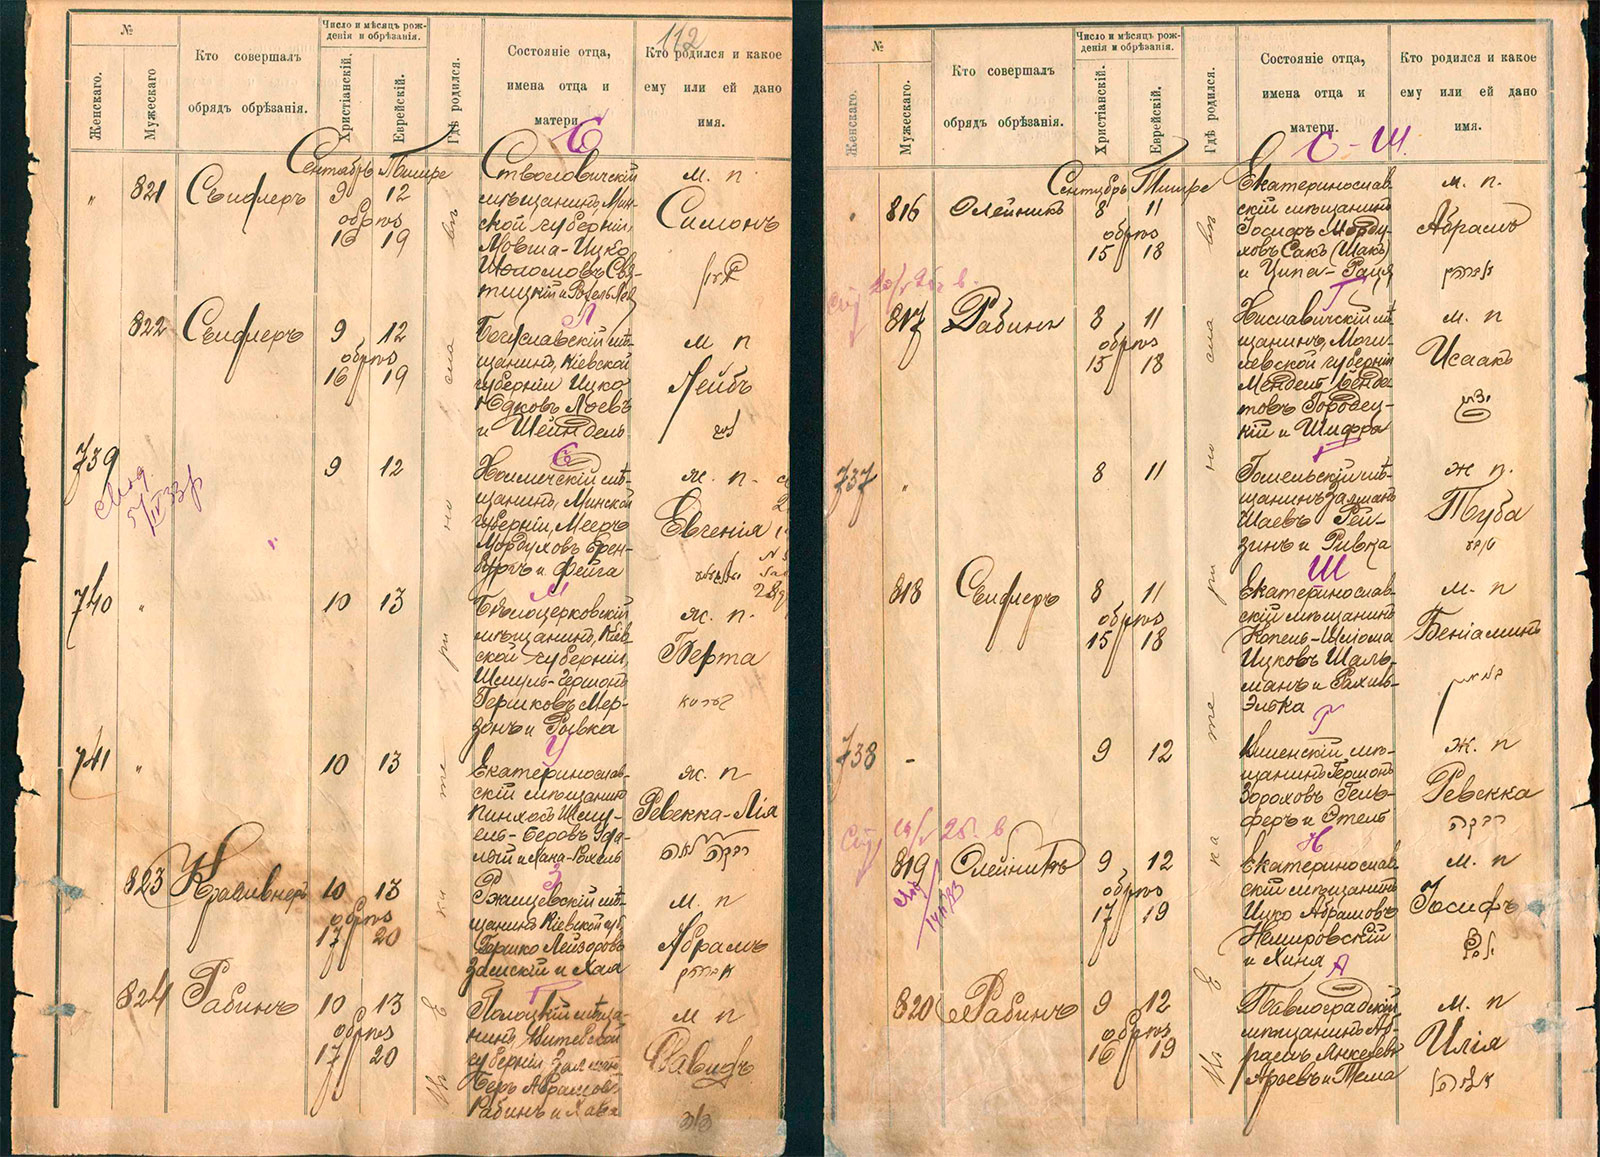 112
№
Женскаго.
Мужескаго
Кто совершалъ
обрядъ обрѣзанія.
Число и мѣсяцъ рож-
денія и обрѣзанія.
Христіанскій.
Еврейскій.
Гдѣ родился.
Состояніе отца,
имена отца и
матери.
Кто родился и какое
ему или ей дано
имя.
С
Сентябрь Тишре
въ
сла
но
ри
те
ка
Е
821
Сѣиферъ
9 12
обрѣз
16 19
мѣщанинъ, Мин-
ской губерніи,
Мовша-Ицко
м. п.
Симонъ
Л
822
Сѣиферъ
9 12
обрѣз
16 19
щанинъ, Кіевской
губерніи Ицко
Юдковъ Лоевъ
и Шейндель
м п
Лейбъ
С
739
9 12
щанинъ, Минской
губерніи, Мееръ
Мордуховъ Ерен-
бургъ и Фейга
ж. п.
Евгенія
М
740
"
10 13
Бѣлоцерковскій
мѣщанинъ, Кіев-
ской губерніи,
Шмуль-Гершонъ
Гершковъ Мер-
зонъ и Рывка
ж. п.
Берта
У
741
"
10 13
Екатеринослав-
скій мѣщанинъ
Пинхосъ Шму-
ель-Беровъ
и Хана-Рохель
ж. п
Ревекка-Лія
רבקה לאה
З
823
10 13
обрѣз
17 20
Ржищевскій мѣ-
щанинъ Кіевской губ.
Гершко Лейзоровъ
Замскій и Хая
м. п
Абрамъ
אברהם
Г
824
Рабинъ
10 13
обрѣз
17 20
Полоцкій мѣща-
нинъ Витебской
губерніи Залманъ
Беръ Абрамовъ
Рабинъ и Хава
м п
Давидъ
דוד
№
Женскаго.
Мужескаго.
Кто совершалъ
обрядъ обрѣзанія.
Число и мѣсяцъ рож-
денія и обрѣзанія.
Христіанскій.
Еврейскій.
Гдѣ родился.
Состояніе отца,
имена отца и
матери.
Кто родился и какое
ему или ей дано
имя.
С-Ш.
Сентябрь Тишре
въ
сла
но
ри
те
ка
Е
816
Олейникъ
8 11
обрѣз
15 18
Екатеринослав-
скій мѣщанинъ
Іосифъ Морду-
ховъ Сакъ (Шакъ)
и Ципа-Рася
м. п.
Абрамъ
אברהם
Г
817
Рабинъ
8 11
обрѣз
15 18
Хиславичскій мѣ-
щанинъ, Моги-
левской губерніи
Мендель
Городец-
кій и Шифра
м. п
Исаакъ
יצחק
Г
737
"
8 11
Гомельскій мѣ-
щанинъ Залманъ
Шаевъ Рей-
зинъ и Ривка
ж п.
Туба
טובע
Ш
818
Сѣиферъ
8 11
обрѣз
15 18
Екатеринослав-
скій мѣщанинъ
Копель-Шлема
Ицковъ Шаль-
манъ и Рахиль-
Элька
м. п
Беніаминъ
בנימין
Г
738
-
9 12
щанинъ Гершонъ
Зороховъ Гель-
феръ и Этель
ж. п
Ревекка
רבקה
Н
819
Олейникъ
9 12
обрѣз
17 19
Екатеринослав-
скій мѣщанинъ
Ицко Абрамовъ
Немировскій
и Хиня
м. п
Іосифъ
יוסף
А
820
Рабинъ
9 12
обрѣз
16 19
Павлоградскій
мѣщанинъ Аб-
рамъ Янкелевъ
Ароевъ и Тема
м. п
Илія